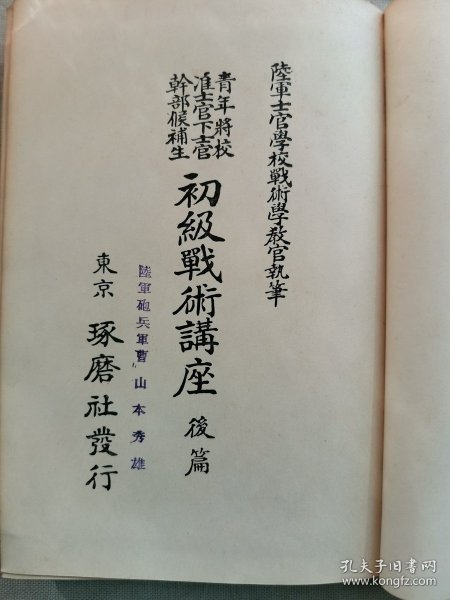 陸軍士官學校戰術學教官執筆
青年將校
准士官下士官
幹部候補生
初級戰術講座 後篇
陸軍砲兵軍曹 山本秀雄
東京 琢磨社發行
孔夫子旧书网
www.kongfz.com